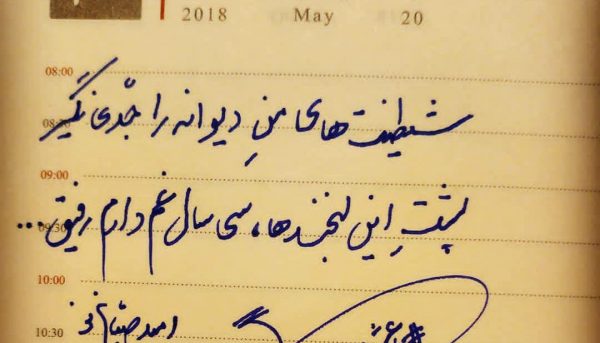 2018 May 20
08:00
شیطنت های منِ دیوانه را جدّی نگیر
08:30
09:00
پشتِ این لبخندها، سی سال غم دارم رفیق...
09:30
10:00
امید صباغ نو
10:30